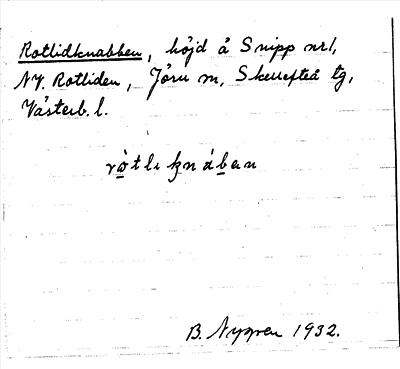 Rotlidknabben, höjd å Snipp nr 1,
NV. Rotliden, Jörn sn, Skellefteå tg,
Västerb. l.
rò̱tlikná̱ben
B. Nygren 1932.